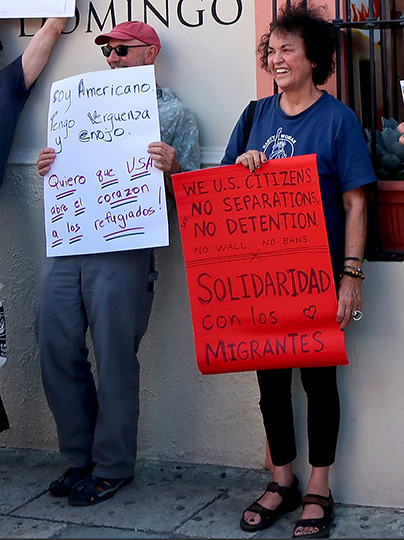 DOMINGO
Soy Americano.
Tengo Verguenza
y enojo.
Quiero que USA
abre el corazon
a los refugiados!
WE U.S. CITIZENS
NO SEPARATIONS,
NO DETENTION
NO WALL, NO BANS.
SOLIDARIDAD
con los
MIGRANTES